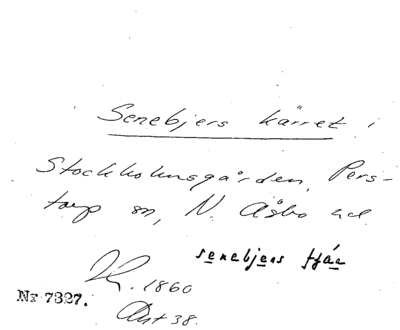 Senebjers kärret i
Stockholmsgården, Pers-
torp sn, N. Åsbo hd.
senebjers
K. 1860
Ant 38.
Nr 7327.